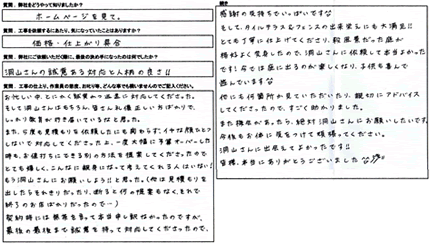 質問．弊社をどうやって知りましたか？
ホームページを見て。
質問．工事を依頼するにあたり、気になっていたことはありますか？
価格・仕上がり具合
質問．弊社にご依頼いただく際に、最後の決め手になったのは何ですか？
洞山さんの誠実ある対応と人柄の良さ!!
質問．工事の仕上り、作業員の態度、お叱り等、どんな事でも構いませんのでご記入ください。
お忙しい中、とにかく誠実かつ迅速に対応してくださった。
そして洞山さんはもちろん皆さん礼儀正しいお方ばかりで、
しっかり教育が行き届いているなと思った。
また、何度も見積りを依頼したにも関わらず、イヤな顔ひとつ
しないで対応してくださった上、一度大幅に予算オーバーした
時もお値打ちにできる別の方法を提案してくださったので
とても嬉しく、こんなに親身になって考えてくれる人はいない！
もう洞山さんにお願いしよう!!と思った。(他は見積もりを
出したらそれきりだったり、断ると何の提案もなく、それで
終りのお店ばかりだったので…)
契約時には無茶を言って本当申し訳なかったのですが、
最後の最後まで誠実を持って対応してくださったので、
続き
感謝の気持ちでいっぱいです
そして、タイルテラス&フェンスの出来栄えにも大満足!!
とても丁寧に仕上げてくださり、殺風景だった庭が
格好よく変身したので、洞山さんに依頼して本当よかった
です！今では庭に出るのが楽しくなり、子供も喜んで
遊んでいます
他にも何箇所か見ていただいたり、親切にアドバイス
してくださったので、すごく助かりました。
また機会があったら、絶対洞山さんにお願いしたいです。
今後もお体に気をつけて頑張ってください。
洞山さんに出会えてよかったです!!
皆様、本当にありがとうございました